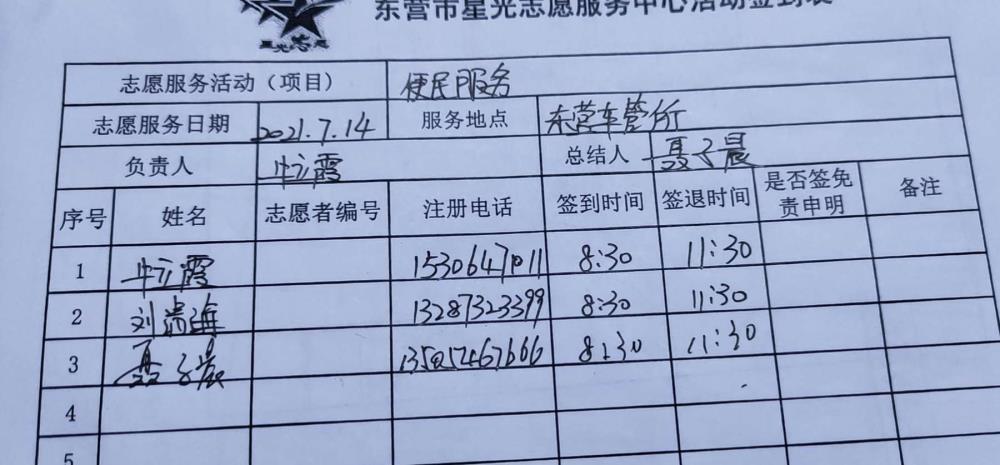 星光志愿
东营市星光志愿服务中心活动签到表
志愿服务活动（项目） 便民服务
志愿服务日期 2021.7.14 服务地点 东营车管所
负责人 牛立霞 总结人 聂子晨
序号 姓名 志愿者编号 注册电话 签到时间 签退时间 是否签免责申明 备注
1 牛立霞 8:30 11:30
2 刘 13287323399 8:30 11:30
3 聂子晨 8:30 11:30
4
5